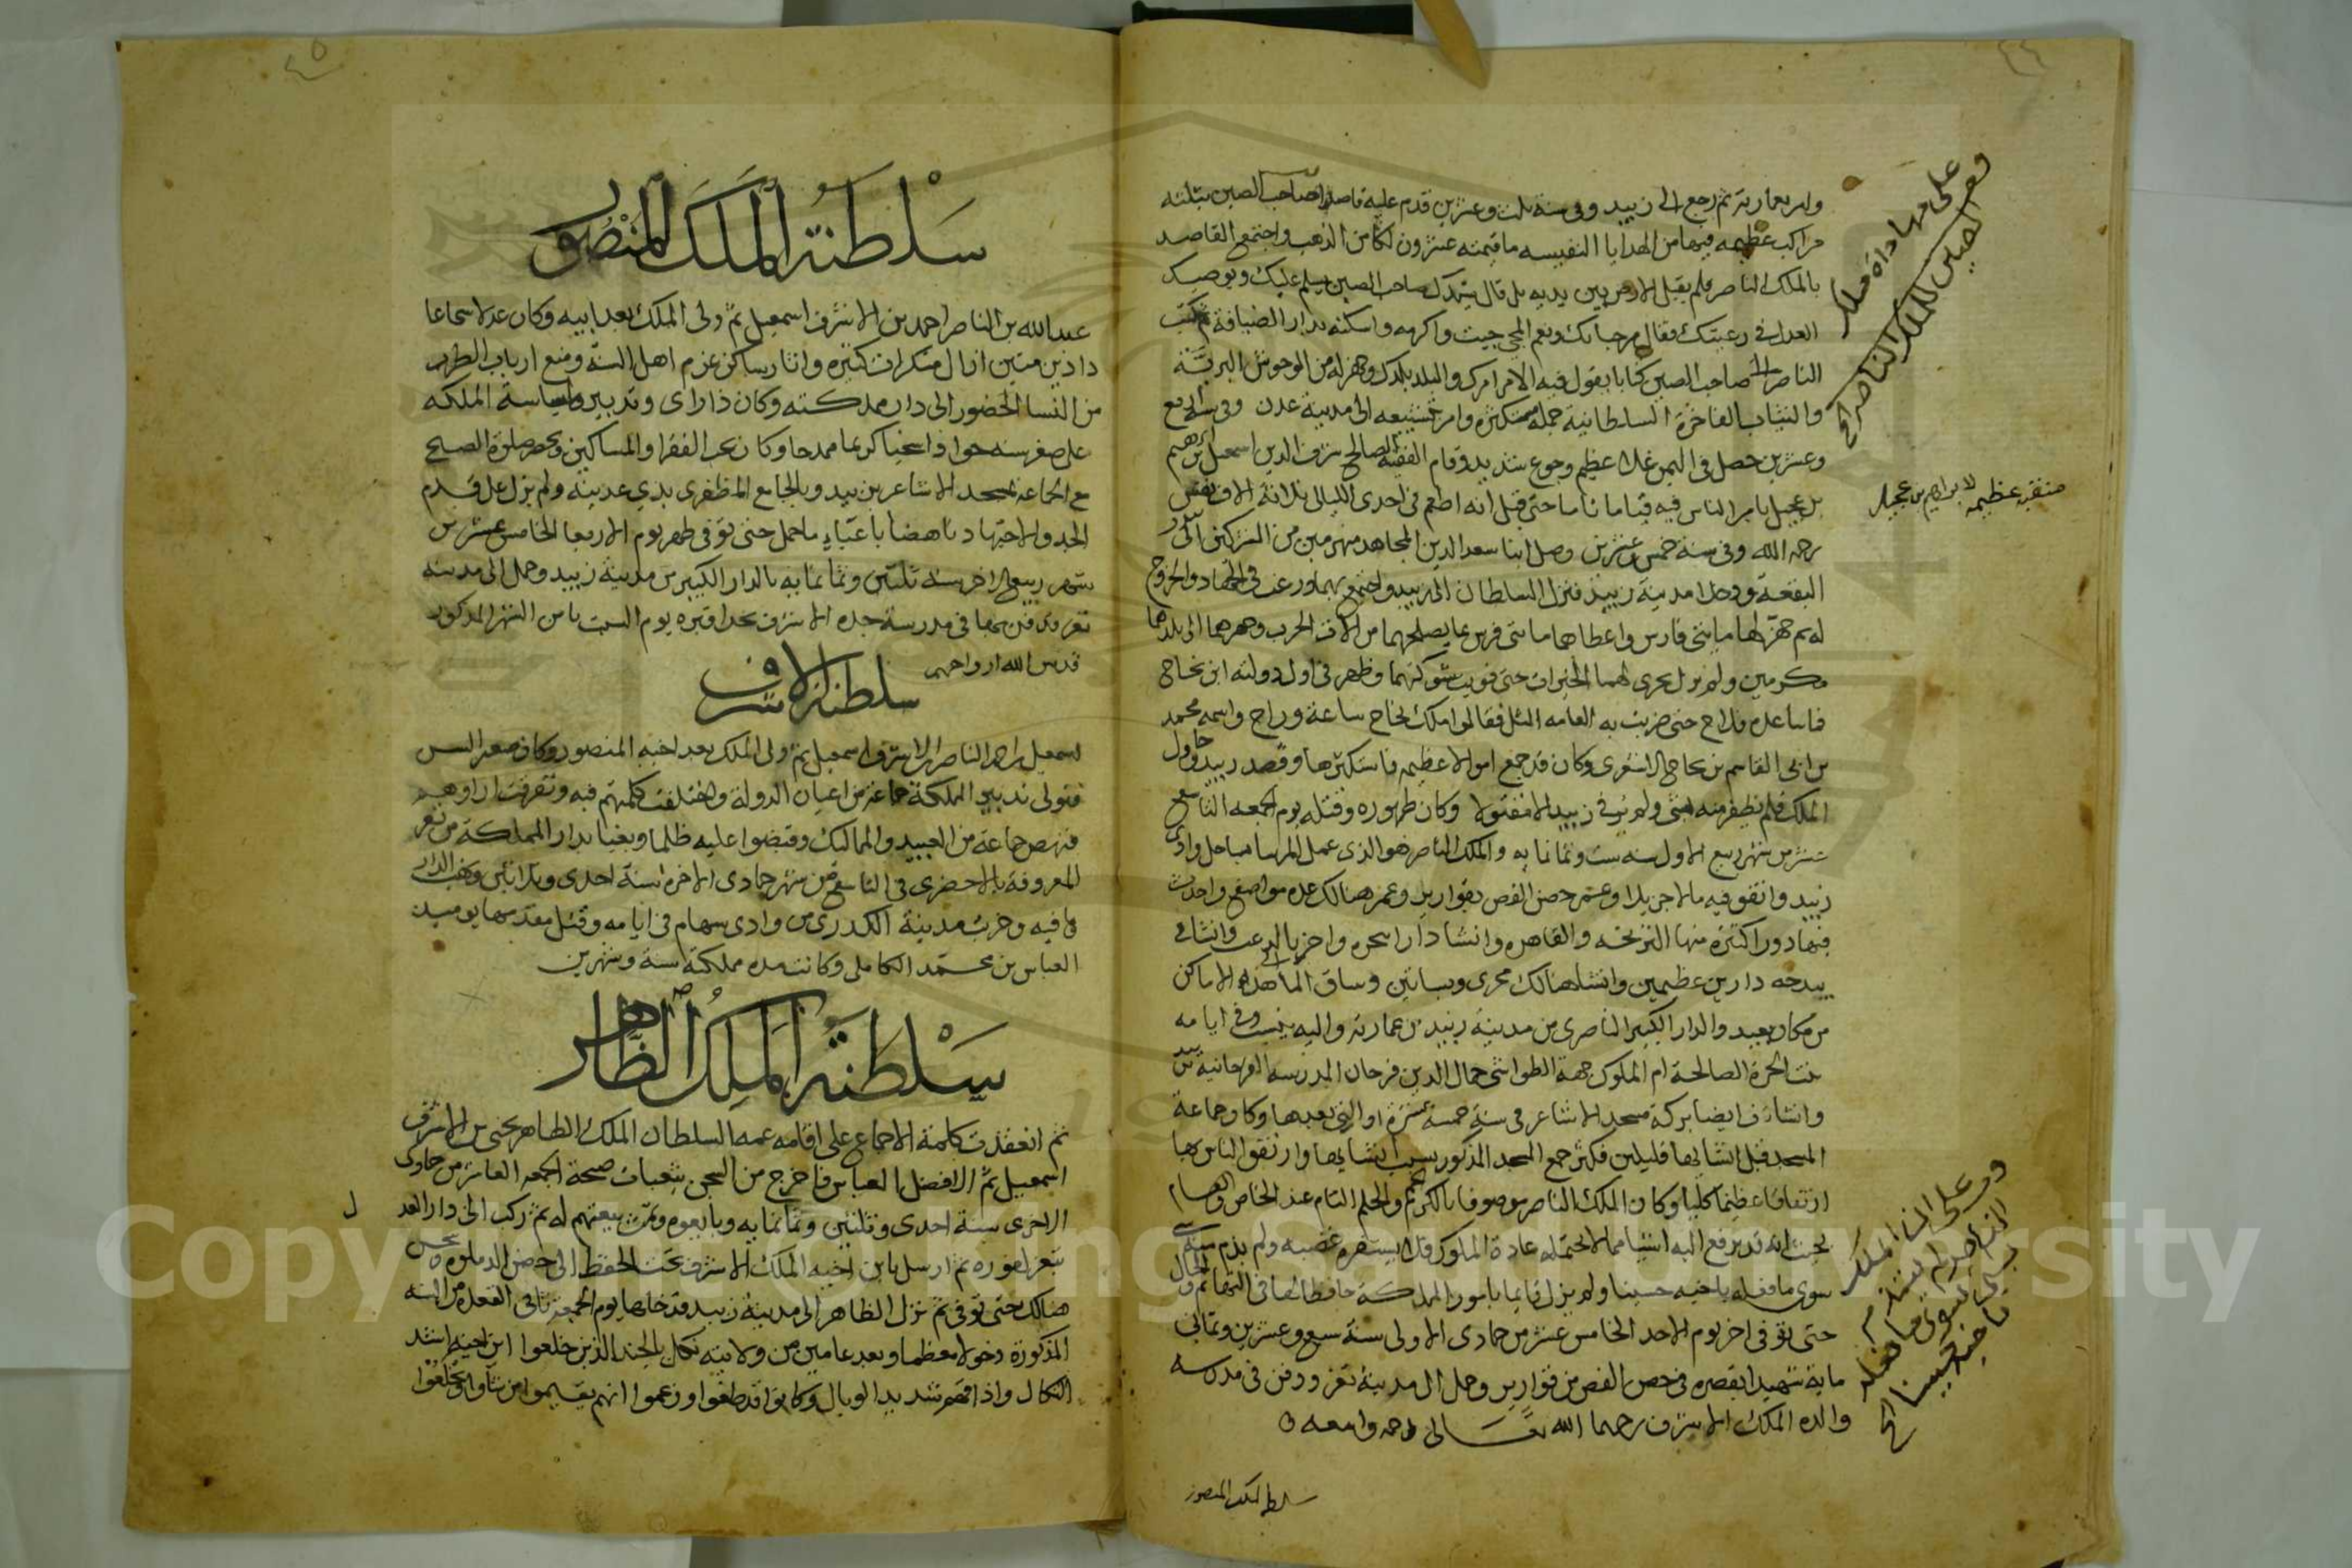 وامر بعمارته ثم رجع الى زبيد وفي سنة ثلث وعشرين قدم عليه قاصد صاحب الصين بثلثه
مراكب عظيمه فيها من الهدايا النفيسه ما قيمته عشرون لكا من الذهب واجتمع القاصد
بالملك الناصر فلم يقبل الارض بين يديه بل قال سيدك صاحب الصين يسلم عليك ويوصيك
العدل في رعيتك فقال مرحبا بك ونعم المجي جيت واكرمه واسكنه بدار الضيافة ثم كتب
الناصر الى صاحب الصين كتابا يقول فيه الامر امرك والبلد بلدك وجهز له من الوحوش البريه
والثياب الفاخرة السلطانية جملة مستكثره وامر بتشييعه الى مدينة عدن وفي سنة اربع
وعشرين حصل في اليمن غلا عظيم وجوع شديد وقام الفقيه الصالح شرف الدين اسمعيل بن ابرهيم
بن عجيل بامر الناس فيه قياما تاما حتى قيل انه اطعم في احدى الليالي ثلاثة الاف نفس
رحمه الله وفي سنة خمس وعشرين وصل ابنا سعد الدين المجاهد منهزمين من
ودخلا مدينة زبيد فنزل السلطان الى زبيد واجتمع بهما ورغب في الجهاد والخروج
له ثم جهز لهما مايتي فارس واعطاهما مايتي فرس بما يصلحهما من الات الحرب وجهزهما الى بلدهما
مكرمين ولم يزل يجرى لهما الخيرات حتى قويت شوكتهما وظهر في اول دولته ابن نجاح
حتى ضربت به العامه المثل فقالوا ملك نجاح ساعة وراح واسمه محمد
بن ابي القاسم بن نجاح الاشعري وكان قد جمع اموالا عظيمه فاستكثرها وقصد زبيد وحاول
الملك فلم يظفر منه بشي ولم ير في زبيد الا مقتولا وكان ظهوره وقتله يوم الجمعه التاسع
عشر من شهر ربيع الاول سنه ست وثمانمايه والملك الناصر هو الذى عمل المرسا بساحل وادى
زبيد وانفق فيه مالا جزيلا وعمر حصن القص بقوارير وعمر هنالك عده مواضع واحدث
فيها دورا كثيرة منها النزيخه والقاهره وانشا دارا بحره واخر وانشا في
بيدحه دارين عظيمين وانشا هنالك مجرى وبساتين وساق الما الى هذه الاماكن
من مكان بعيد والدار الكبير الناصرى من مدينة زبيد من عمارته واليه ينسب وفي ايامه
بنت الحرة الصالحة ام الملوك جهة الطواشي جمال الدين فرحان المدرسه الفرحانية بزبيد
وانشات ايضا بركة مسجد الاشاعر في سنة خمسة عشرة او التي بعدها وكان جماعة
المسجد قبل انشايها قليلين فكثر جمع المسجد المذكور بسبب انشايها وارتفق الناس بها
ارتفاقا عظيما كليا وكان الملك الناصر موصوفا بالكرم والحلم التام عند الخاص والعام
بحيث انه قد يرفع اليه اشيا مما لا تحتمله عادة الملوك فلا يستفزه غضبه ولم يذم بشي
سوى ما فعله باخيه حسين ولم يزل قايما بامور المملكة حافظا لها
حتى توفي اخر يوم الاحد الخامس عشر من جمادى الاولى سنة سبع وعشرين وثماني
ماية شهيدا بقصره في حصن القص من قوارير وحمل الى مدينة تعز ودفن في مدرسه
والده الملك الاشرف رحمهما الله تعالى
سلطنة الملك المنصور
على مهاداة ملك
الصين للملك الناصر الخ
منقبه عظيمه لابراهيم بن عجيل
وعلى ان الملك
الناصر لم يذم
بشي سوى ما فعله
باخيه حسين الخ
سلطنة الملك المنصور
عبد الله بن الناصر احمد بن الاشرف اسمعيل ثم ولى الملك بعد ابيه وكان عدلا شجاعا
دا دين متين ازال منكرات كثيره واثار ساكن عزم اهل السنة ومنع ارباب الطرب
من النسا الحضور الى دار مملكته وكان ذا راى وتدبير وسياسة المملكه
على صغر سنه جوادا سخيا كريما ممدحا وكان يحب الفقرا والمساكين ويحضر صلوة الصبح
مع الجماعة بمسجد الاشاعر بزبيد وبالجامع المظفرى بذي عدينة ولم يزل على قدم
الجد والاجتهاد ناهضا باعباء ما حمل حتى توفي ظهر يوم الاربعا الخامس عشر من
شهر ربيع الاخر سنة ثلثين وثمانمايه بالدار الكبير من مدينة زبيد وحمل الى مدينه
تعز ودفن بها في مدرسة جده الاشرف بحذا قبره يوم السبت ثامن الشهر المذكور
قدس الله ارواحهم
سلطنة الاشرف
اسمعيل بن احمد الناصر بن الاشرف اسمعيل ثم ولى الملك بعد اخيه المنصور وكان صغير السن
فتولى تدبير المملكة جماعة من اعيان الدولة واختلفت كلمتهم فيه وتفرقت اراوهم
فنهض جماعة من العبيد والمماليك وقبضوا عليه ظلما وبغيا بدار المملكة من تعز
المعروفة بالاخضرى في التاسع من شهر جمادى الاخره سنة احدى وثلاثين ونهب الدار
وما فيه وخربت مدينة الكدرى من وادى سهام في ايامه وقتل مقدمها يوميذ
العباس بن محمد الكاملى وكانت مده مملكته سنة وشهرين
سلطنة الملك الظاهر
ثم انعقدت كلمة الاجماع على اقامه عمه السلطان الملك الظاهر يحيى بن الاشرف
اسمعيل بن الافضل العباس فاخرج من السجن بثعبات صبحة الجمعه العاشر من جمادى
الاخرى سنة احدى وثلثين وثمانمايه وبايعوه وتمت بيعتهم له ثم ركب الى دار العدل
بتعز لفوره ثم ارسل بابن اخيه الملك الاشرف تحت الحفظ الى حصن الدملوه فحبس
هنالك حتى توفي ثم نزل الظاهر الى مدينة زبيد فدخلها يوم الجمعة ثاني القعده من السنه
المذكورة دخولا معظما وبعد عامين من ولايته نكل بالجند الذين خلعوا ابن اخيه اشد
النكال واذاقهم شديد الوبال وكانوا قد طغوا وزعموا انهم يقيموا من شاوا ويخلعوا